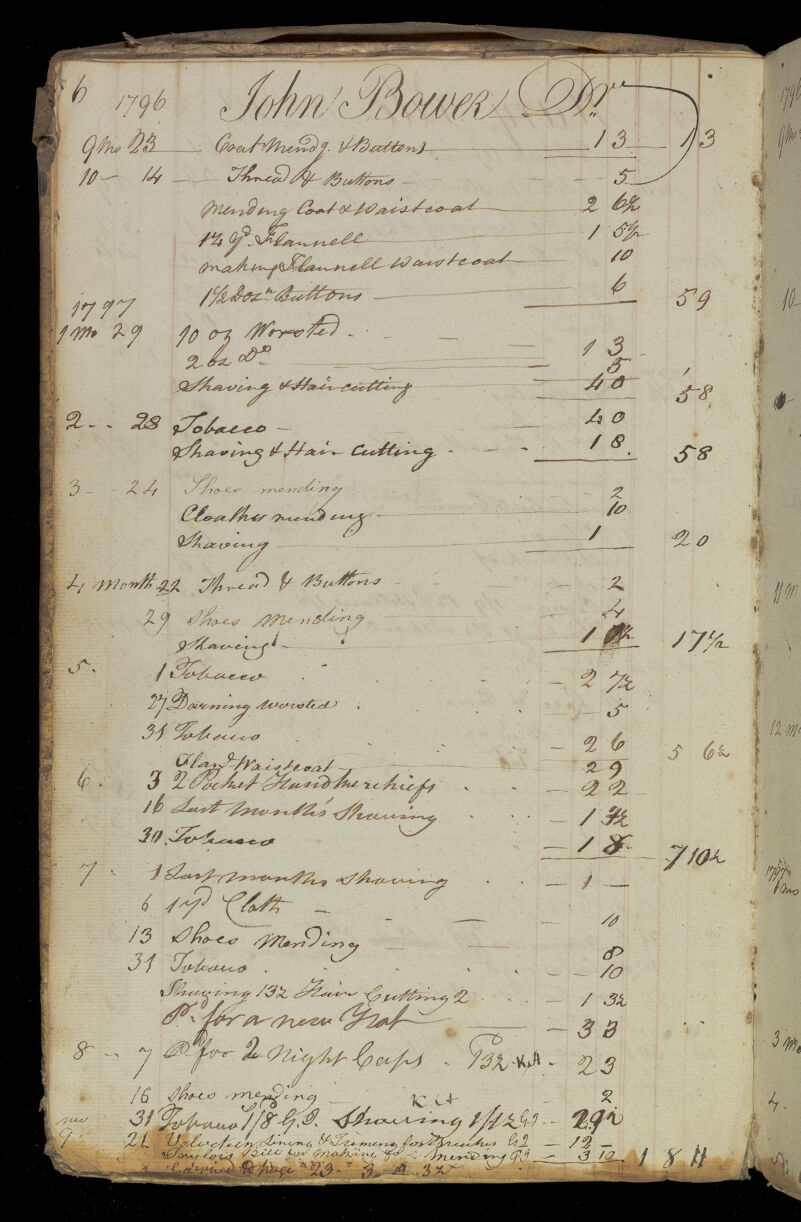 6 1796 John Bower Dr
9 Mo 23 Coat Mendg. & Buttons 1 3 1 3
10 - 14 - Thread & Buttons - 5
Mending Coat & Waistcoat 2 6½
1¼ Yd. Flannell 1 5½
making Flannell Waistcoat 10
1½ Dozn. Buttons 6 5 9
1797
1 Mo 29 10 oz Worsted
2 oz Do. 1 3
5
Shaving & Hair cutting 4 0 5 8
2 - - 28 Tobacco 4 0
Shaving & Hair Cutting 1 8 5 8
3 - - 24 Shoes mending 2
Cloathes mending 10
Shaving 1 2 0
4 Month 22 Thread & Buttons 2
29 Shoes Mending 4
Shaving 1 1 7½
5. 1 Tobacco 2 7½
27 Darning worsted 5
31 Tobacco 2 6 5 6½
Flanl. Waistcoat 2 9
6. 3 2 Pocket Handkerchiefs 2 2
16 Last Month's Shaving 1
30 Tobacco 1 8 7 10½
7. 1 Last months Shaving 1 -
6 1 yd Cloth 10
13 Shoes Mending 8
31 Tobaco 10
Shaving 13½ Hair Cutting 2 1 3½
Pd. for a new Hat 3 3
8 - - 7 Pd for 2 Night Caps 2 3
16 Shoes mending 2
31 Tobacco 1/8 Shaving 1/1½ 2 9½
9. 21 Lining & Trimng for Breeches G2 12 -
Taylors Bill for making Do & Mending G3 3 10 1 8 11
Carried to page 23